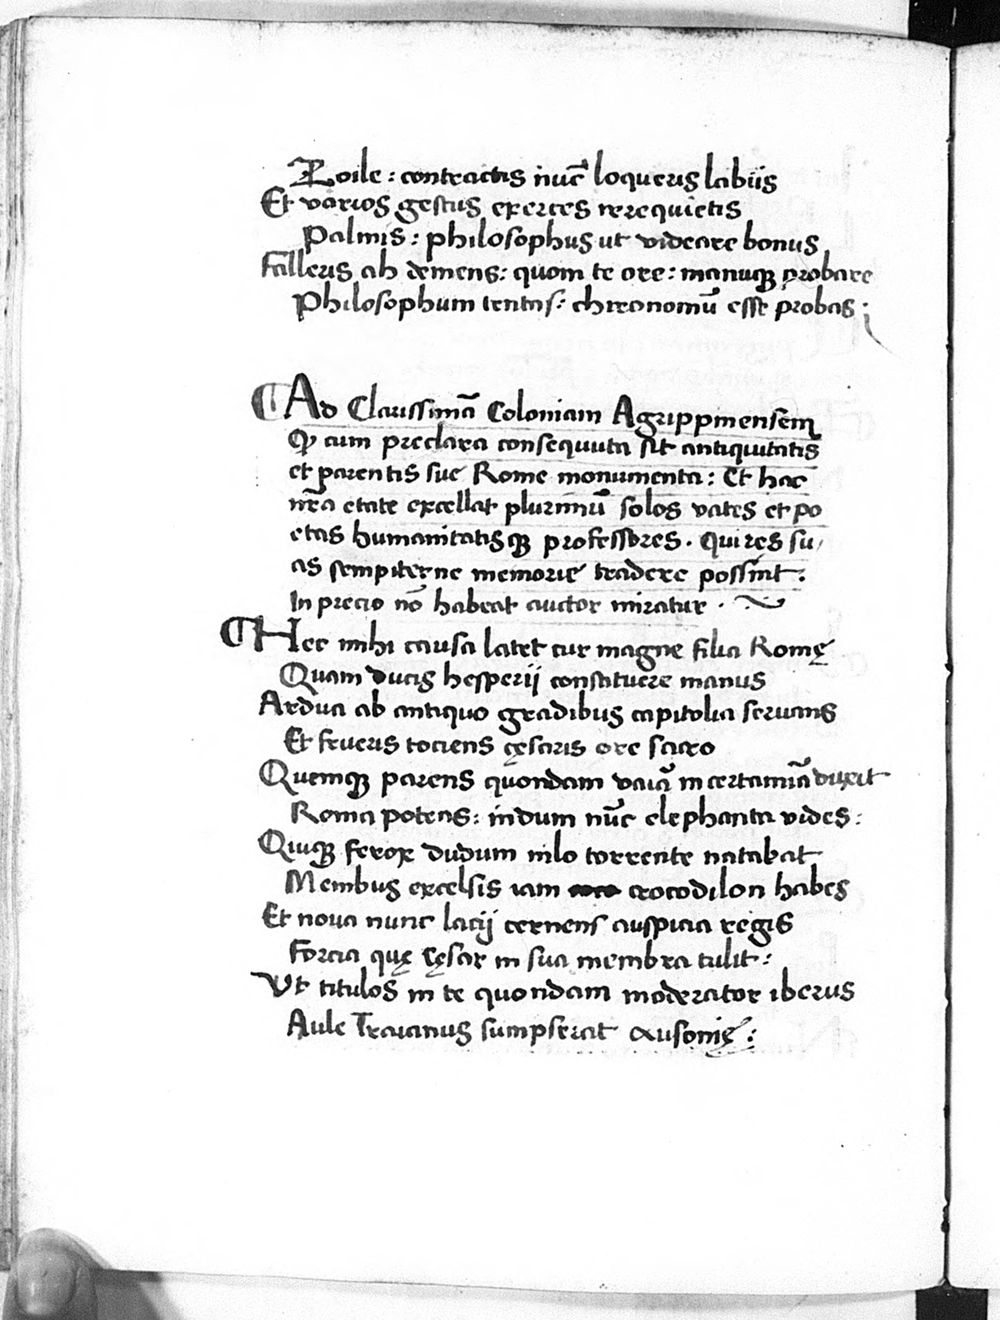 Zoile : contractis nūc loqueris labiis
Et varios gestus exerces rerequietis
Palmis : philosophus ut videare bonus
Falleris ah demens : quom te ore : manuqꝫ probare
Philosophum tentas : chironomū esse probas :
Ad Clarissimā Coloniam Agrippinensem
Qꝫ cum preclara consequuta sit antiquitatis
et parentis sue Rome monumenta : Et hac
nr̄a etate excellat plurimū solos vates et po
etas humanitatisqꝫ professores . Qui res su
as sempiterne memorię tradere possint .
In precio nō habeat auctor miratur .
Hec mihi causa latet cur magne filia Romę
Quam ducis hesperij constituere manus
Ardua ab antiquo gradibus capitolia servans
Et frueris tociens cęsaris ore sacro
Quemqꝫ parens quondam variā in certaminā duxit
Roma potens : indum nūc elephanta vides :
Quiqꝫ ferox dudum nilo torrente natabat
Membus excelsis iam crocodilon habes
Et nova nunc lacij cernens auspicia regis
Forcia quę Cęsar in sua membra tulit :
Ut titulos in te quondam moderator iberus
Aule Traianus sumpserat Ausonię :